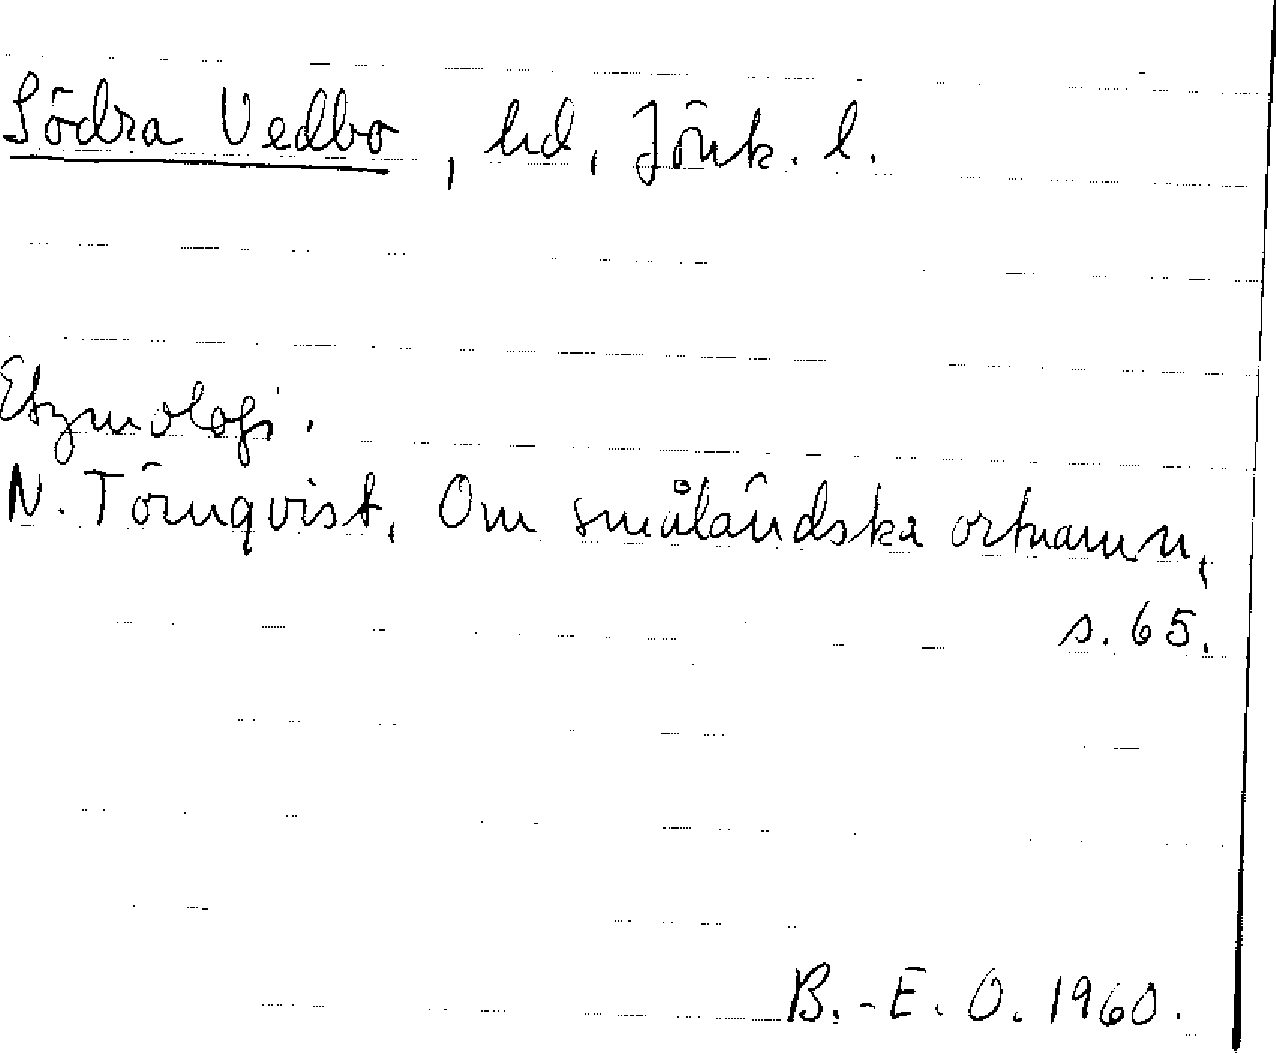 Södra Vedbo, hd, Jönk. l.
Etymologi.
N. Törnqvist, Om småländska ortnamn,
s. 65.
B.-E. O. 1960.